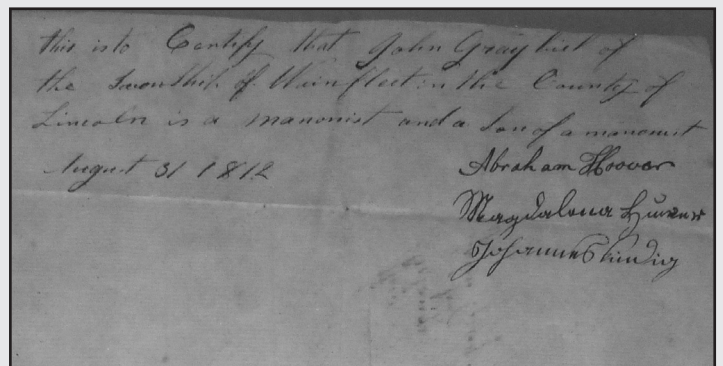 this is to Certify that John Graybiel of
the Township of Wainfleet in the County of
Lincoln is a manonist and a Son of a manonist
August 31 1812
Abraham Hoover
Magdalena
Johannes